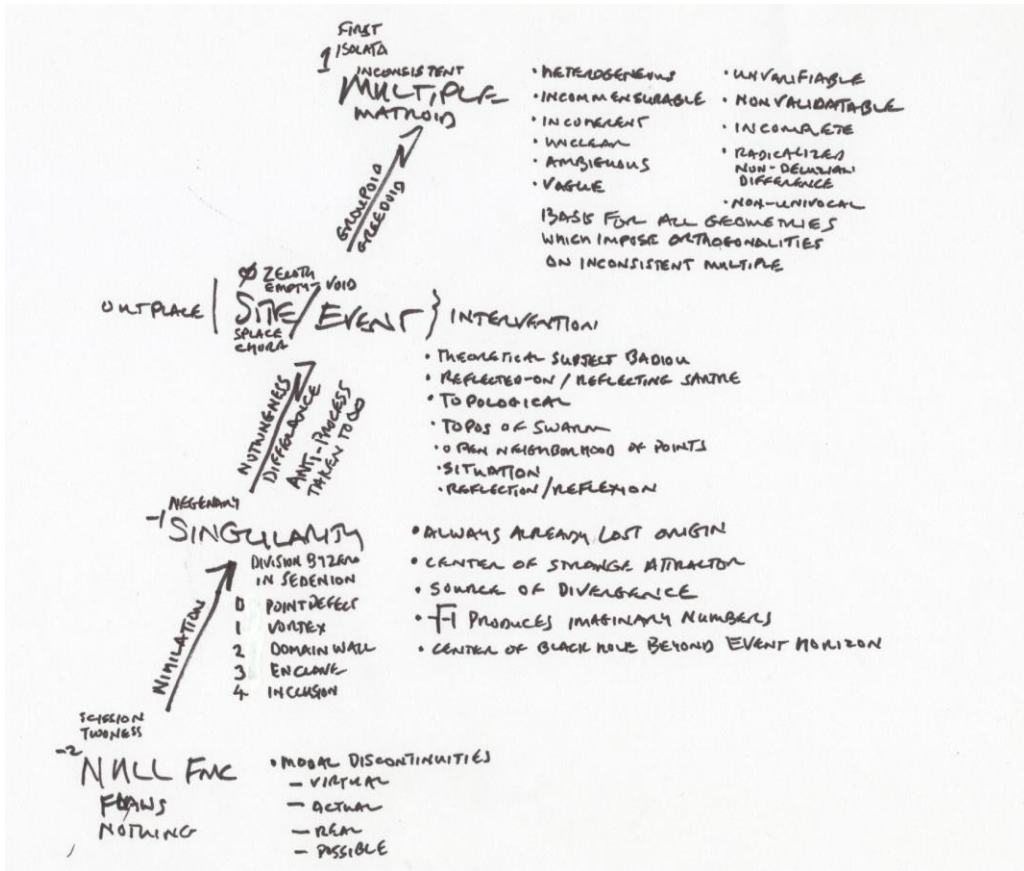 FIRST
1 ISOLATA
INCONSISTENT
MULTIPLE
MATROID
• HETEROGENEOUS
• INCOMMENSURABLE
• INCOHERENT
• UNCLEAR
• AMBIGUOUS
• VAGUE
• UNVALIFIABLE
• NONVALIDATABLE
• INCOMPLETE
• RADICALIZED
NON-DELUZIAN
DIFFERENCE
• NON-UNIVOCAL
BASIS FOR ALL GEOMETRIES
WHICH IMPOSE ORTHOGONALITIES
ON INCONSISTENT MULTIPLE
GROUPOID
GREEDOID
Ø ZEROTH
EMPTY / VOID
OUTPLACE | SITE / EVENT } INTERVENTION
SPLACE
CHORA
• THEORETICAL SUBJECT BADIOU
• REFLECTED-ON / REFLECTING SARTRE
• TOPOLOGICAL
• TOPOS OF SWARM
• OPEN NEIGHBORHOOD OF POINTS
• SITUATION
• REFLECTION/REFLEXION
NOTHINGNESS
DIFFERANCE
ANTI-PROCESS
TAKEN TO
NEGENARY
-1 SINGULARITY
DIVISION BY ZERO
IN SEDENION
0 POINT DEFECT
1 VORTEX
2 DOMAIN WALL
3 ENCLAVE
4 INCLUSION
• ALWAYS ALREADY LOST ORIGIN
• CENTER OF STRANGE ATTRACTOR
• SOURCE OF DIVERGENCE
• √-1 PRODUCES IMAGINARY NUMBERS
• CENTER OF BLACK HOLE BEYOND EVENT HORIZON
NIHILATION
SCISSION
TWONESS
-2
NULL
FLAWS
NOTHING
• MODAL DISCONTINUITIES
– VIRTUAL
– ACTUAL
– REAL
– POSSIBLE